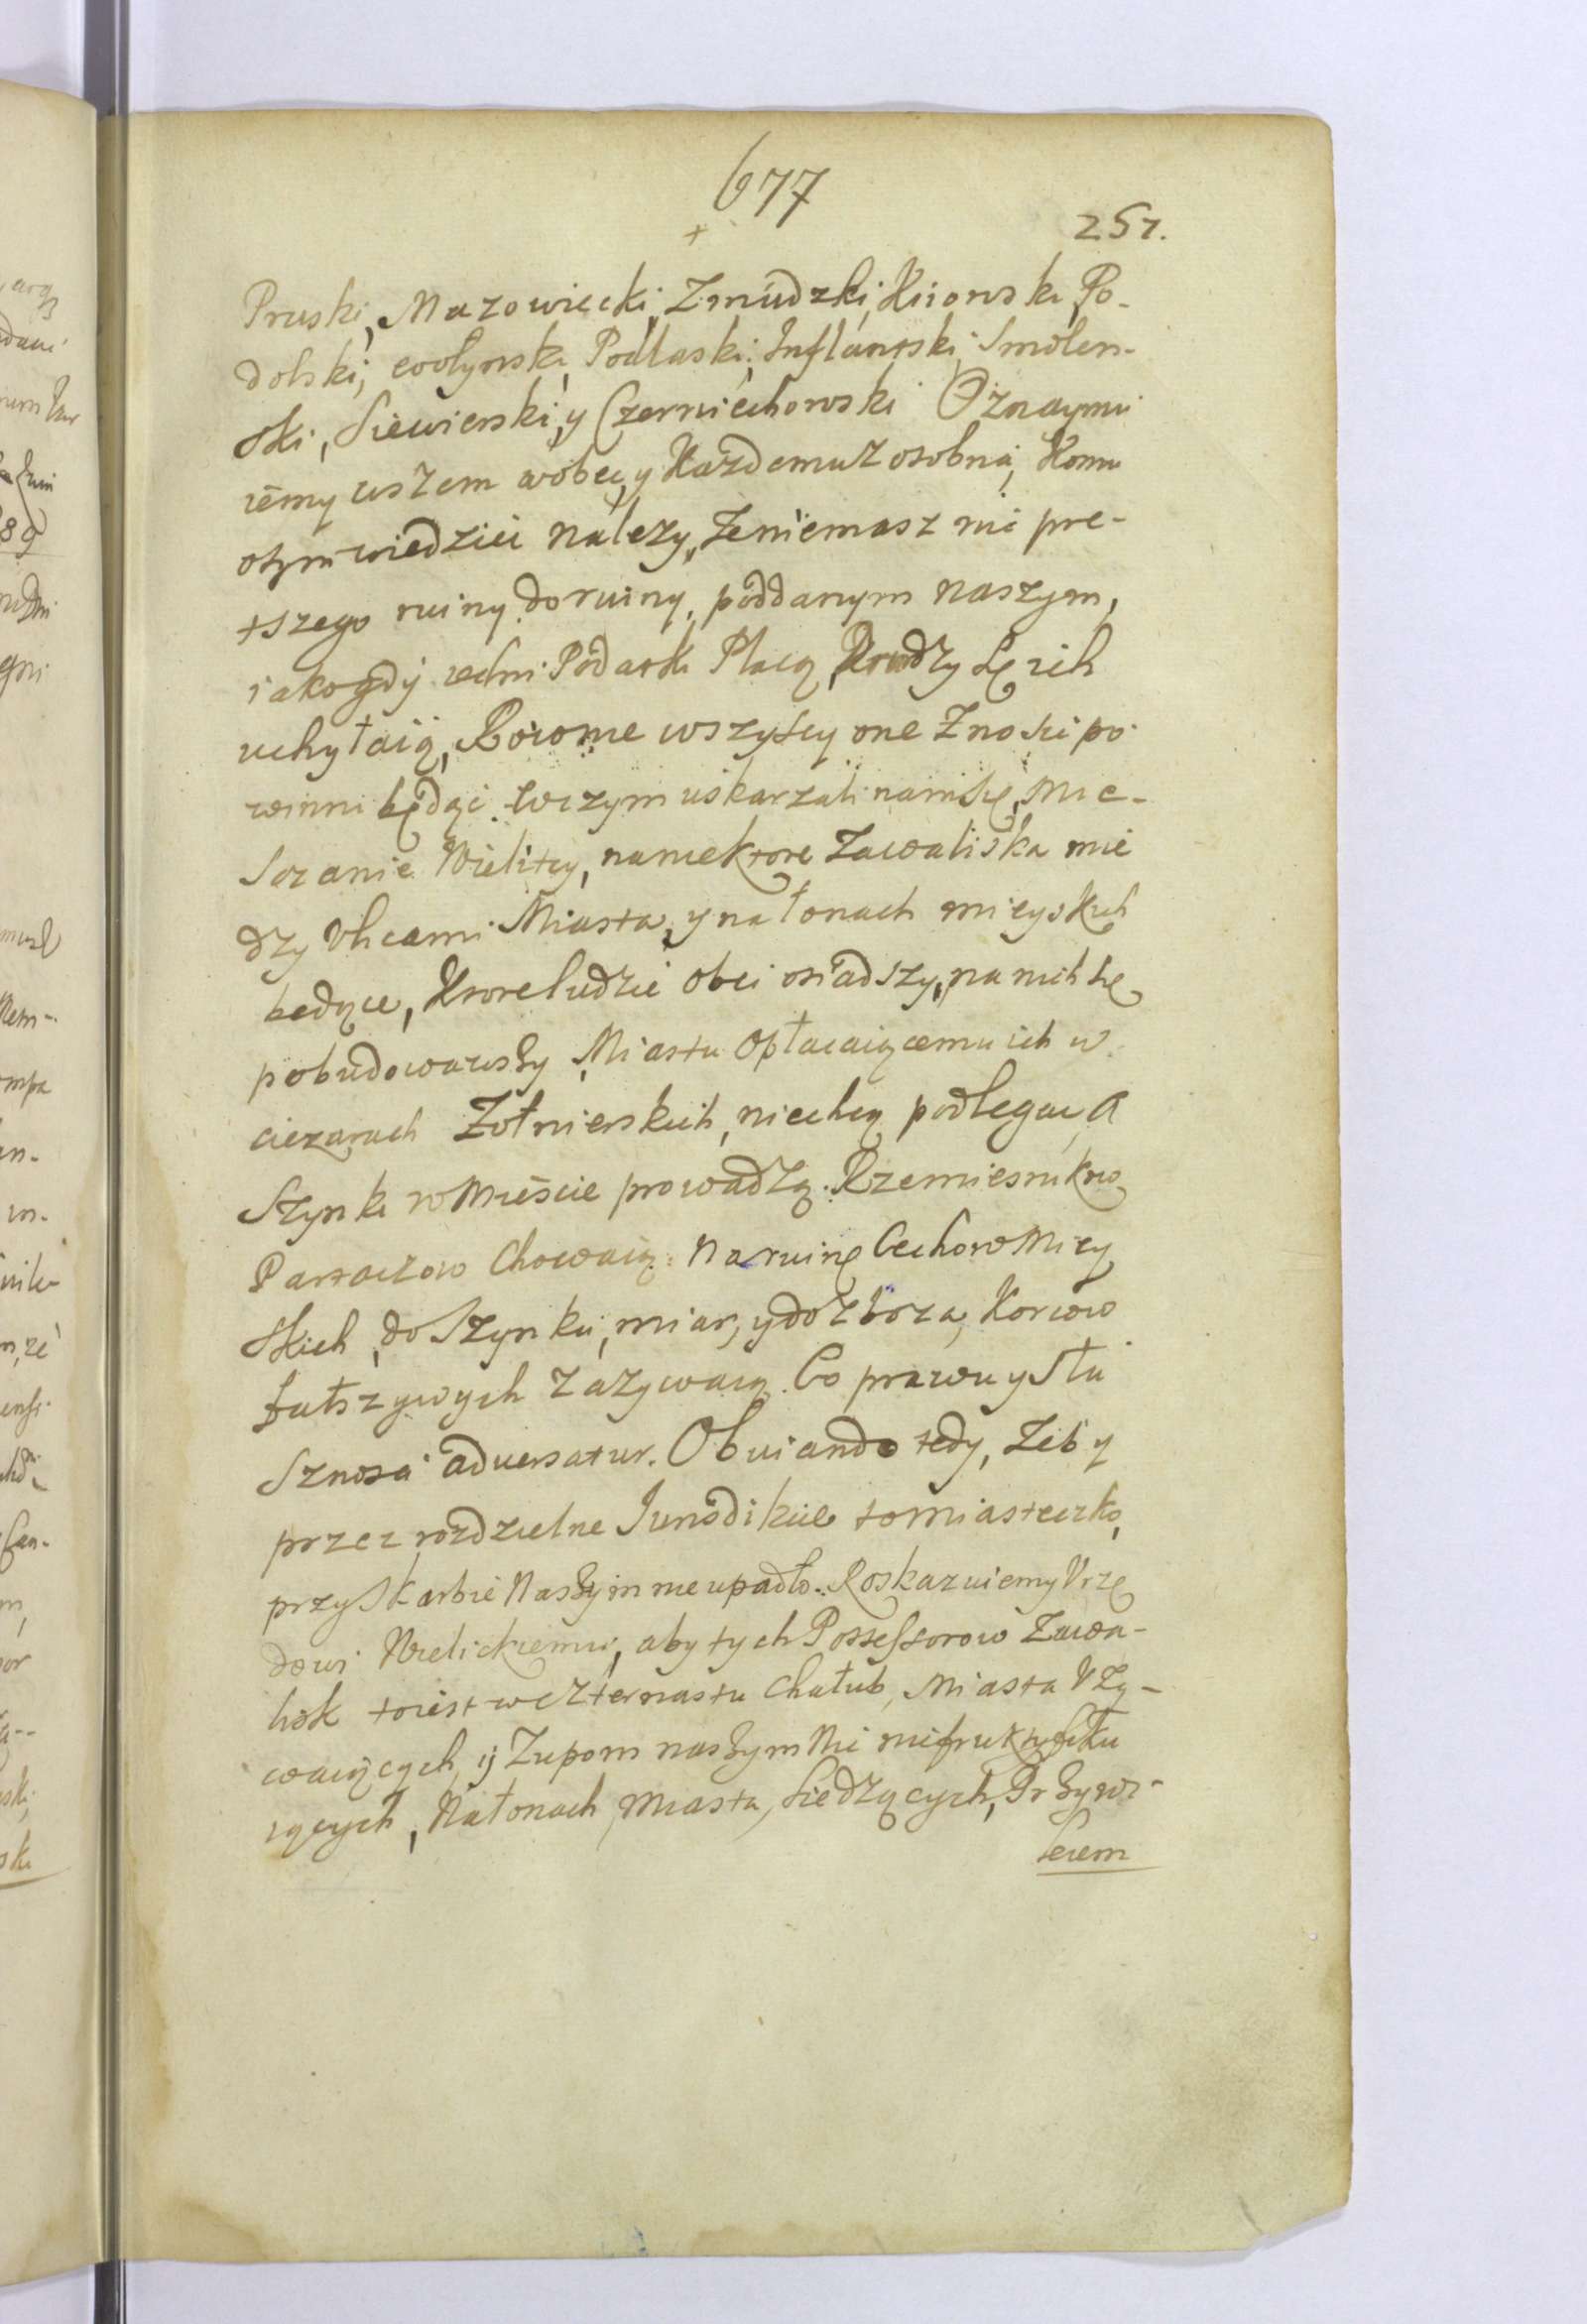 677
251.
Pruski, Mazowiecki, Zmudzki, Kiiowski, Po-
dolski, wołynski, Podlaski, Inflantski, Smolen-
ski, Siewierski, y Czerniechowski Oznaymu
iemy wszem wobec, y Kazdemu z osobna, Komu
otym wiedziec nalezy, ze niemasz nic pre-
tszego ruiny do ruiny, poddanym naszym,
iako gdy iedni Podatki Płacą, Drudzy Się ich
uchylaią, Rowne wszyscy one Znosic po-
winni będąc. Wczym uskarzali nam Się, Mie-
Sczanie Wieliccy, na niektore Zawaliska mie
dzy Vlicami Miasta, y na łonach mieyskich
będące, Ktore ludzie obci osiadszy, na nich Się
pobudowawszy Miastu Opłacaiącemu ich w
ciezarach Zołnierskich, niechcą podlegac, A
Szynki w Miescie prowadzą. Rzemiesnikow
Partaczow Chowaią. Na ruinę Cechow Miey
Skich, do Szynku, miar, y do zboza, Korcow
fałszywych zazywaią. Co prawu y Słu
Sznosci aduersatur. Obuiando tedy, zeby
przez rozdzielne Iurisdikcie to miasteczko,
przy Skarbie Naszym nie upadło. Roskazuiemy Vrzę
dowi Wielickiemu, aby tych Possessorow Zawa-
lisk toiest w czternastu Chałub, Miasta Vzy-
waiących, y Zupom naszym Nic niefruktyfiku
iących, Na łonach Miasta, Siedzących, Przywi-
leiem